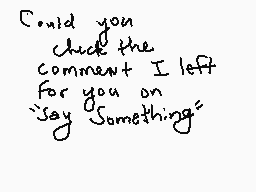 Could you
check the
comment I left
for you on
"Say Something"